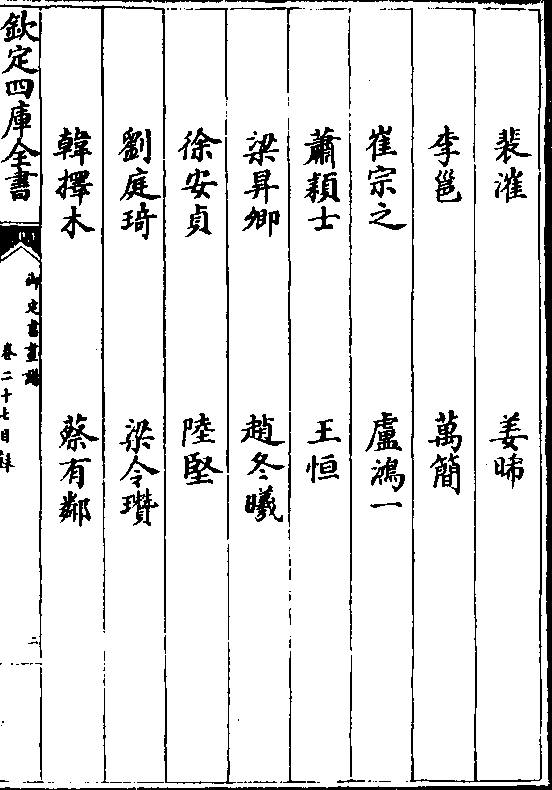 裴漼　姜晞
李邕　萬簡
崔宗之　盧鴻一
蕭穎士　王恒
梁昇卿　趙冬曦
徐安貞　陸堅
劉庭琦　梁令瓚
韓擇木　蔡有鄰
欽定四庫全書
御定書畫譜
卷二十七目録
二